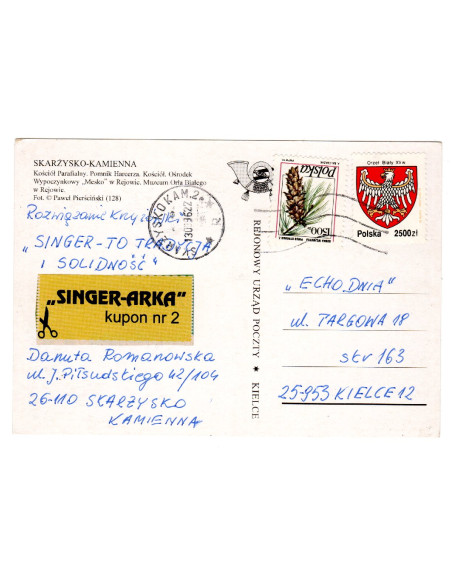 SKARŻYSKO-KAMIENNA
Kościół Parafialny. Pomnik Harcerza. Kościół. Ośrodek
Wypoczynkowy „Mesko" w Rejowie. Muzeum Orła Białego
w Rejowie.
Fot. © Paweł Pierściński (128)
Rozwiązanie krzyżówki
„SINGER - TO TRADYCJA
I SOLIDNOŚĆ"
„SINGER-ARKA"
kupon nr 2
Danuta Romanowska
ul. J. Piłsudskiego 42/104
26-110 SKARŻYSKO
KAMIENNA
REJONOWY URZĄD POCZTY ✷ KIELCE
SKARŻYSKO KAM. 2
Polska
1500 zł
Orzeł Biały XV w.
Polska 2500 zł
„ECHO DNIA"
ul. TARGOWA 18
skr 163
25-953 KIELCE 12